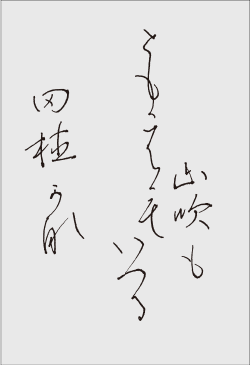 山吹も
ともえもいつる
田植かな